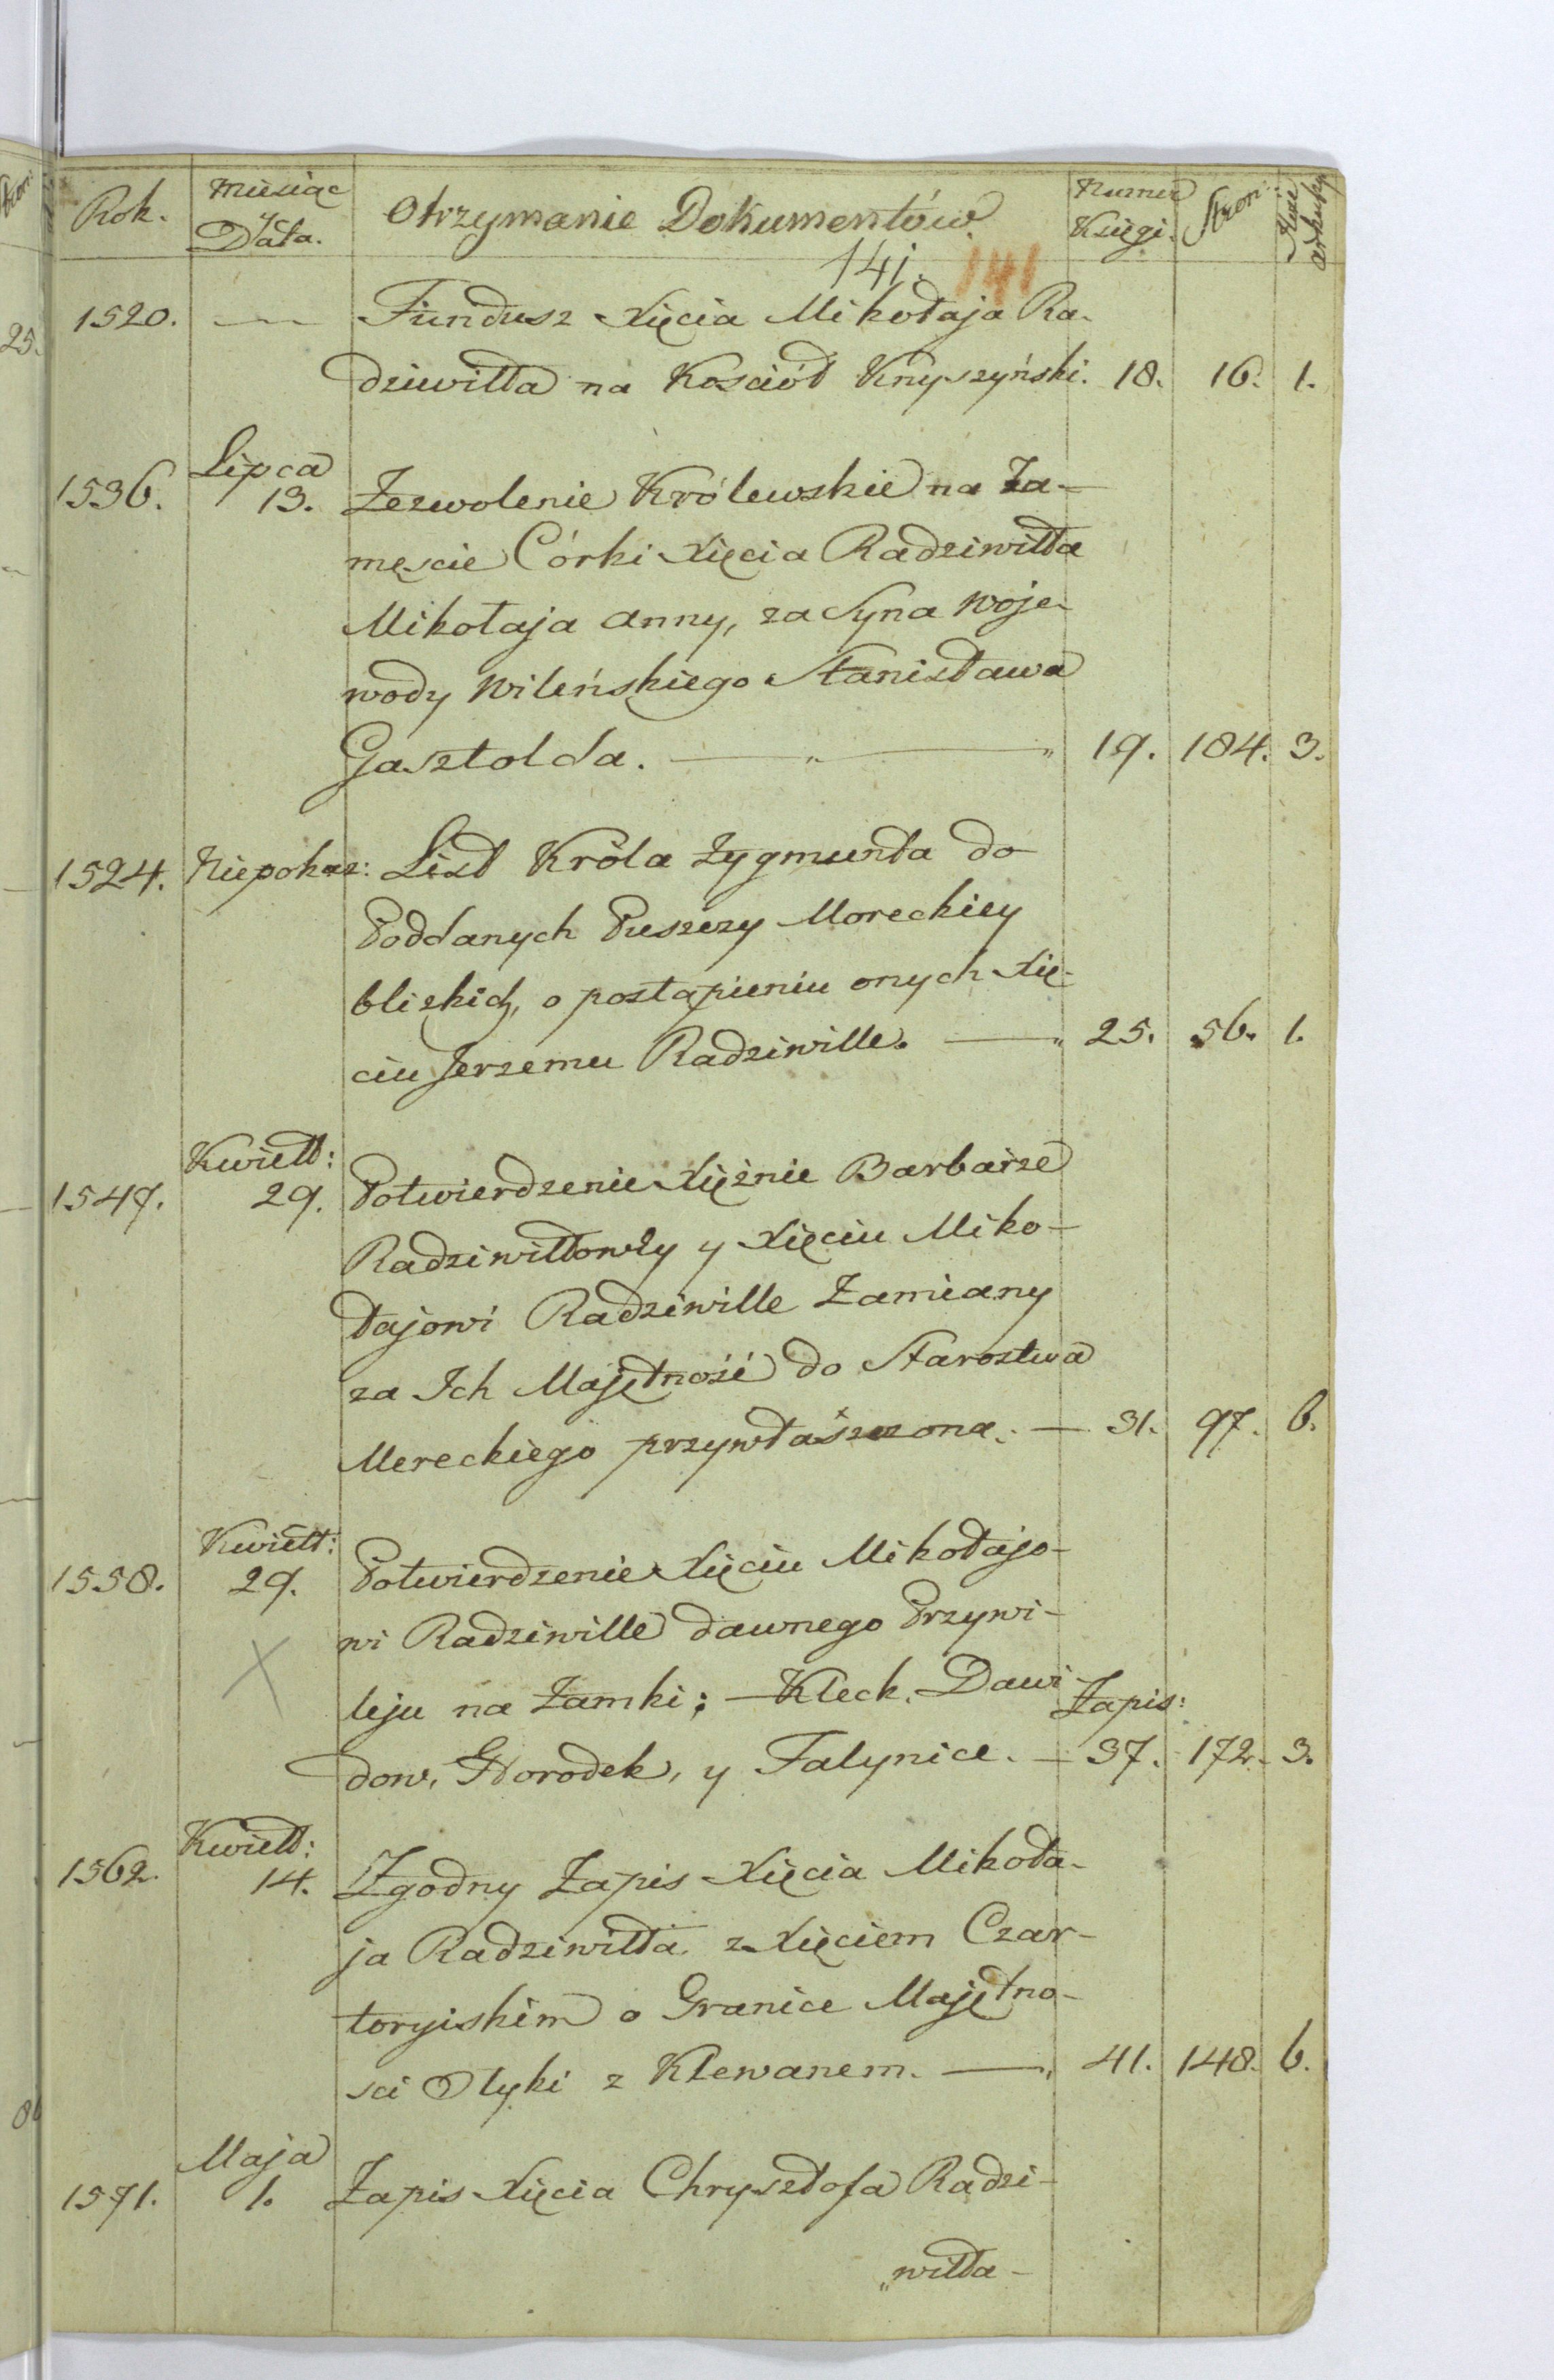 Rok. Miesiąc y Data. Otrzymanie Dokumentów. Numer Księgi. Stron:
141. 141
1520. — Fundusz Xięcia Mikołaja Ra-
dziwiłła na Kościół Knyszyński. 18. 16. 1.
Lipca
1536. 13. Zezwolenie Królewskie na Za-
męscie Córki Xięcia Radziwiłła
Mikołaja Anny, za Syna Woje-
wody Wileńskiego Stanisława
Gasztolda. — „ — „ 19. 184. 3.
1524. Niepokaz: List Króla Zygmunta do
Poddanych Puszczy Moreckiey
blizkich, o postąpieniu onych Xię-
ciu Jerzemu Radziwille. — „ 25. 56. 1.
Kwiett:
1547. 29. Potwierdzenie Xiężnie Barbarze
Radziwiłłowy y Xięciu Miko-
łajowi Radziwille Zamiany
za Ich Majętność do Starostwa
Mereckiego przywłaszczona. — 31. 97. 6.
Kwiett:
1558. 29. Potwierdzenie Xięciu Mikołajo-
wi Radziwille dawnego Przywi-
leju na Zamki; — Kleck, Dawi- Zapis:
dow, Horodek, y Falynice. — 37. 172. 3.
Kwiett:
1562. 14. Zgodny Zapis Xięcia Mikoła-
ja Radziwiłła z Xięciem Czar-
toryiskim o Granice Majętno-
sci Ołyki z Klewanem. — „ 41. 148. 6.
Maja
1571. 1. Zapis Xięcia Chrysztofa Radzi-
„wiłła -